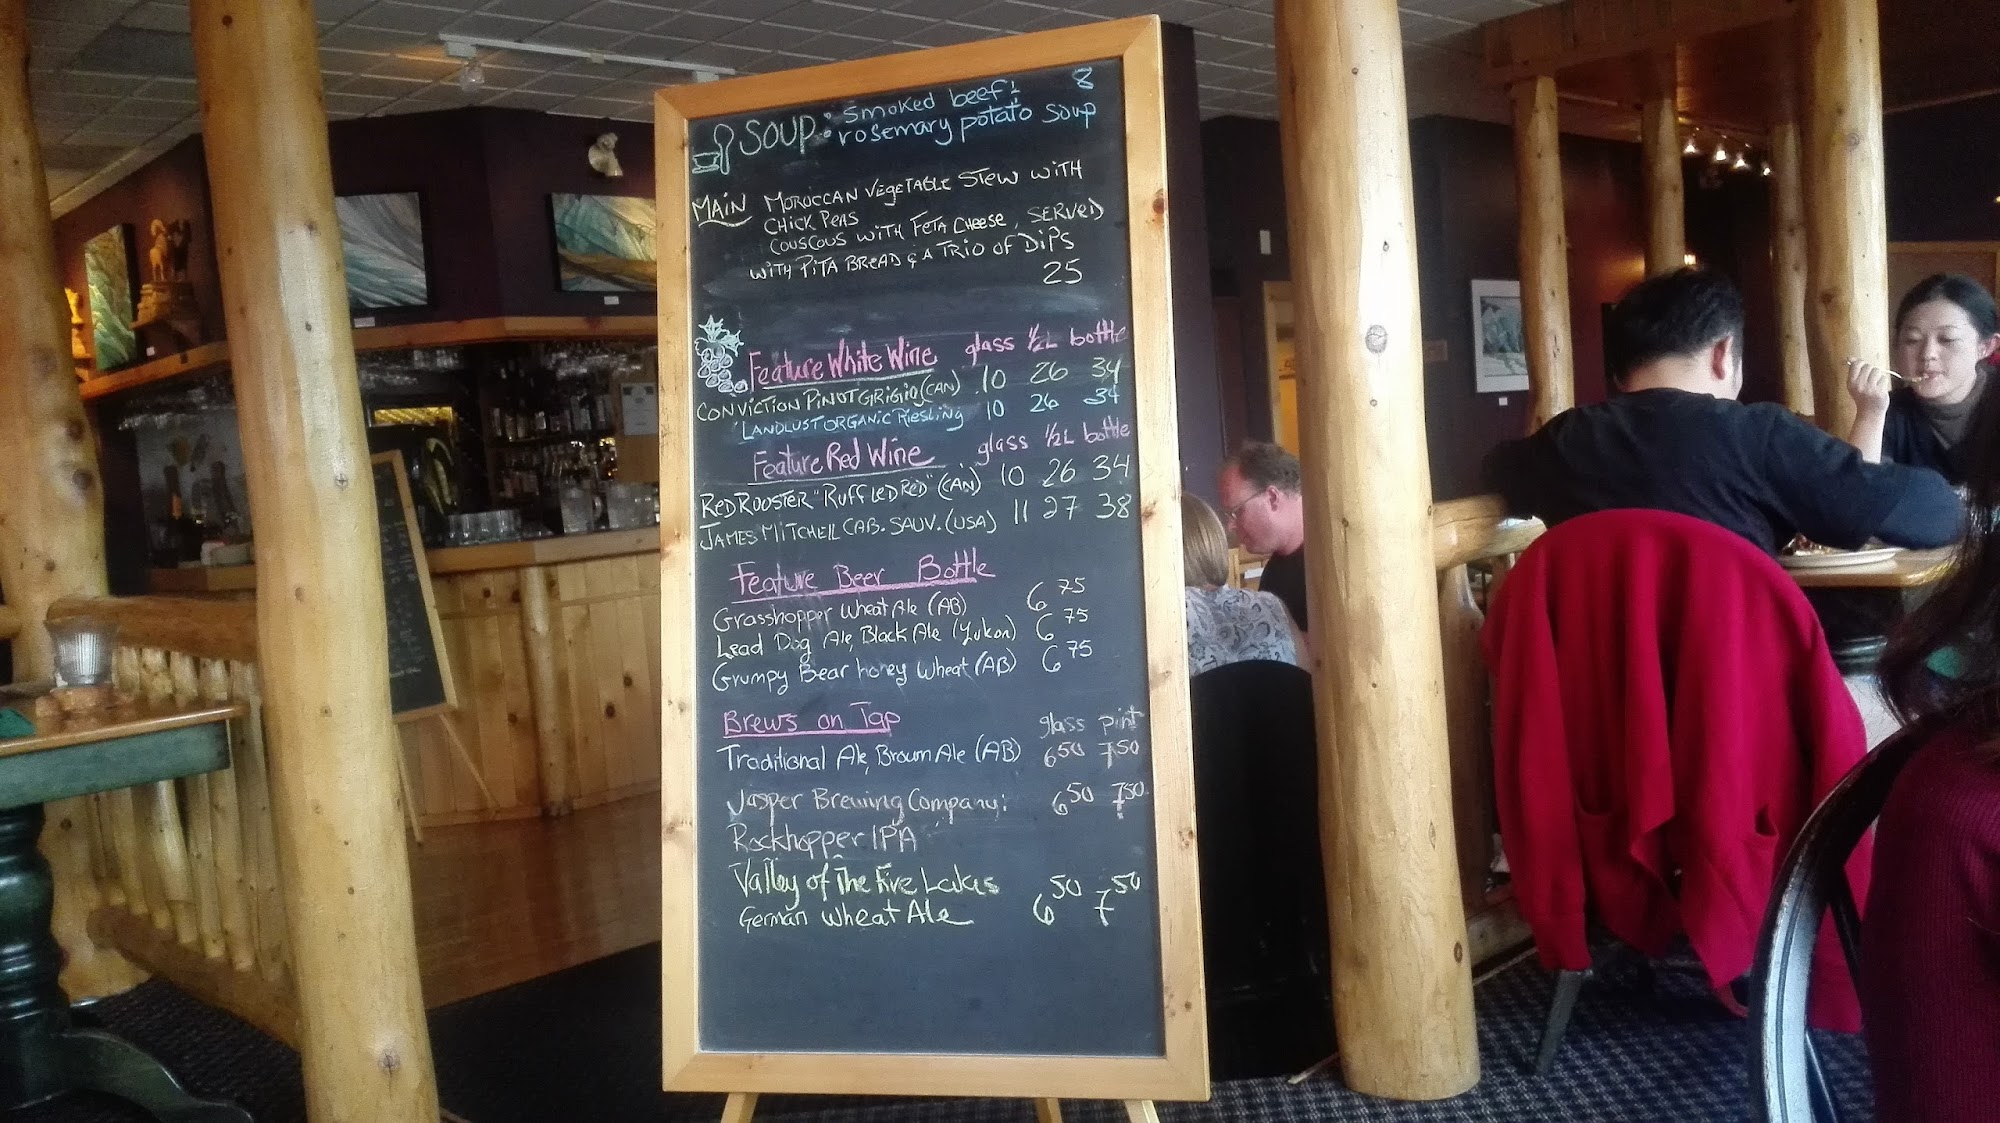 SOUP: Smoked beef & 8
rosemary potato soup
MAIN MOROCCAN VEGETABLE STEW WITH
CHICK PEAS
COUSCOUS WITH FETA CHEESE, SERVED
WITH PITA BREAD & A TRIO OF DIPS
25
Feature White Wine glass 1/2L bottle
CONVICTION PINOT GRIGIO (CAN) 10 26 34
LANDLUST ORGANIC Riesling 10 26 34
Feature Red Wine glass 1/2L bottle
RED ROOSTER "RUFFLED RED" (CAN) 10 26 34
JAMES MITCHELL CAB. SAUV. (USA) 11 27 38
Feature Beer Bottle
Grasshopper Wheat Ale (AB) 6 75
Lead Dog Ale, Black Ale (Yukon) 6 75
Grumpy Bear honey Wheat (AB) 6 75
Brews on Tap glass pint
Traditional Ale, Brown Ale (AB) 6 50 7 50
Jasper Brewing Company: 6 50 7 50
Rockhopper IPA
Valley of The Five Lakes
German Wheat Ale 6 50 7 50